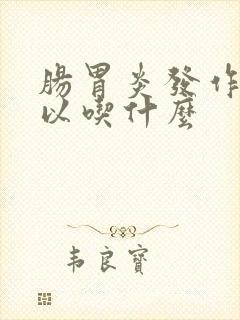 腸胃炎發作
以喫什麼
韦良寶